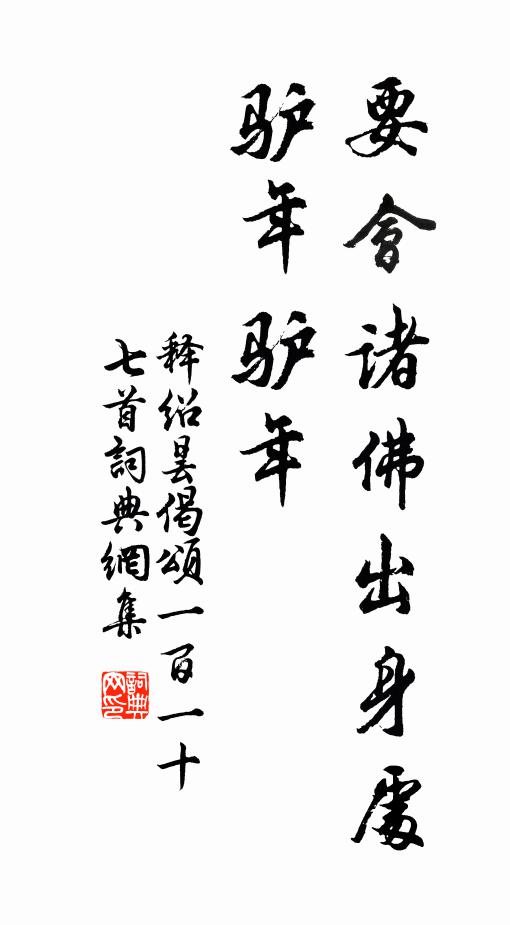 要會諸佛出身處
驴年驴年
释绍昙偈頌一百一十
七首詞典網集
詞典网印